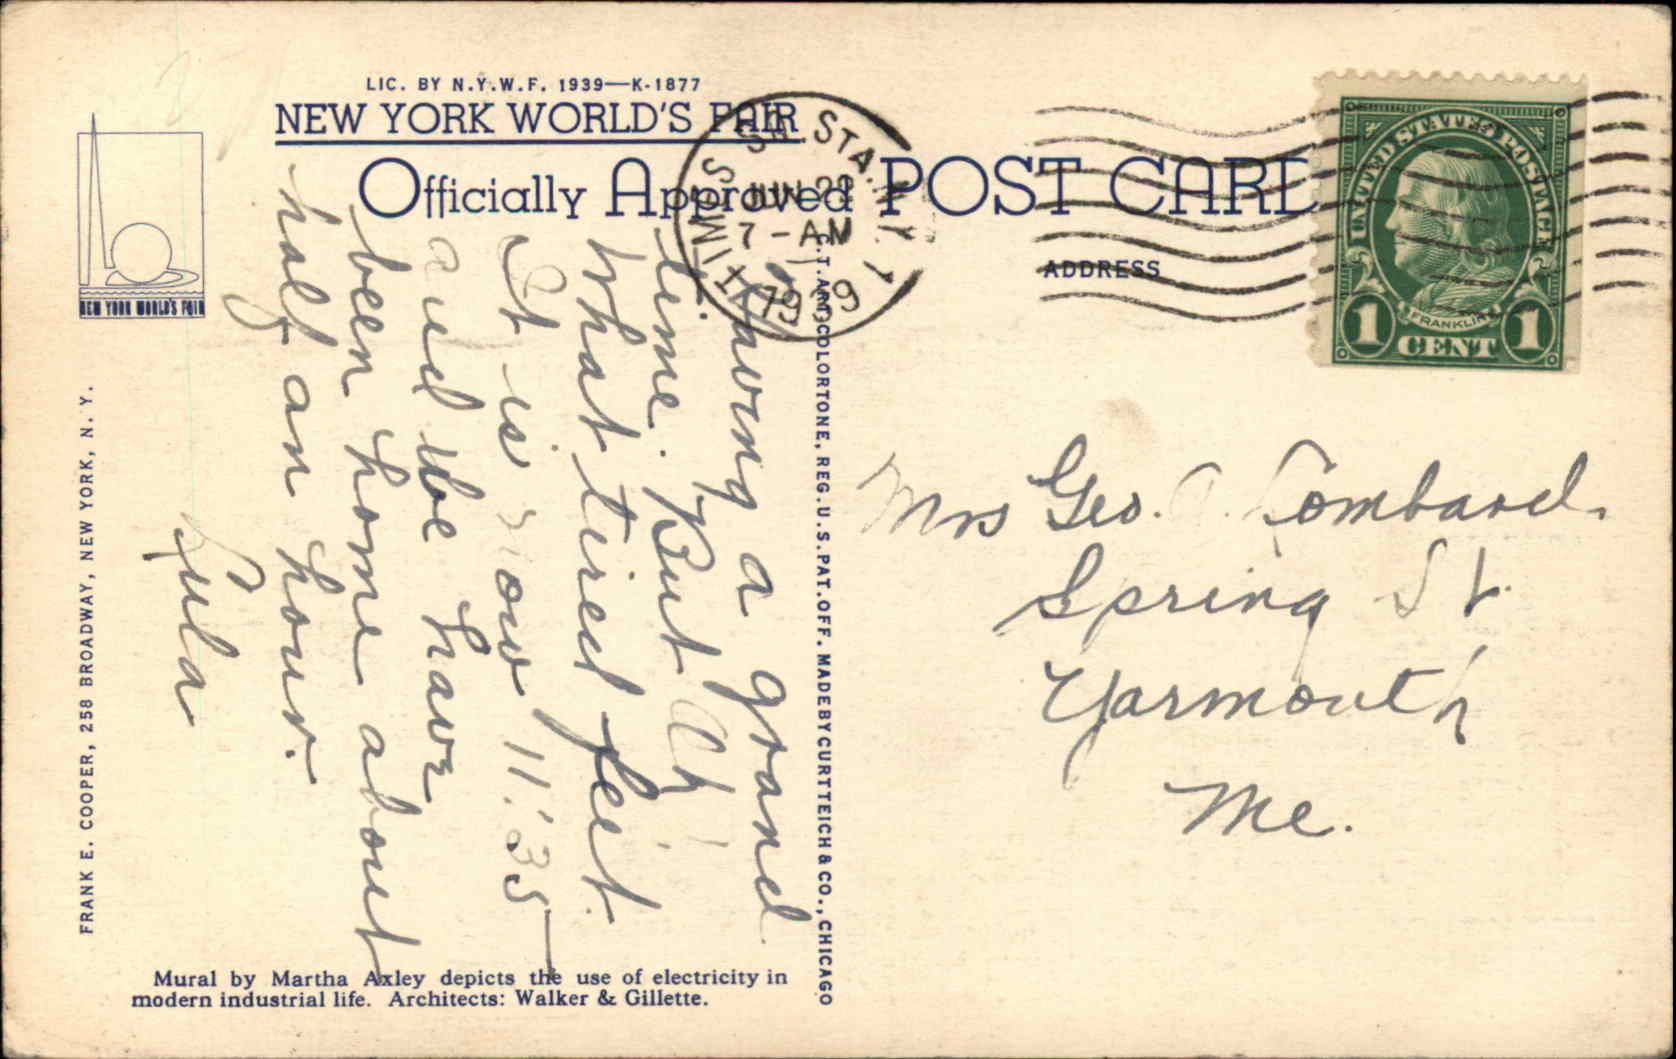 LIC. BY N.Y.W.F. 1939—K-1877
NEW YORK WORLD'S FAIR
Officially Approved POST CARD
NEW YORK WORLD'S FAIR
FRANK E. COOPER, 258 BROADWAY, NEW YORK, N. Y.
Having a grand
time. But Oh!
What tired feet.
It is now 11:35—
and we have
been home about
half an hour.
Lula
Mural by Martha Axley depicts the use of electricity in
modern industrial life. Architects: Walker & Gillette.
C.T. ART COLORTONE, REG. U.S. PAT. OFF. MADE BY CURT TEICH & CO., CHICAGO
STA. N.Y. 1
7 - AM
1939
ADDRESS
UNITED STATES POSTAGE
FRANKLIN
1 CENT 1
Mrs Geo. A. Lombard.
Spring St.
Yarmouth
Me.